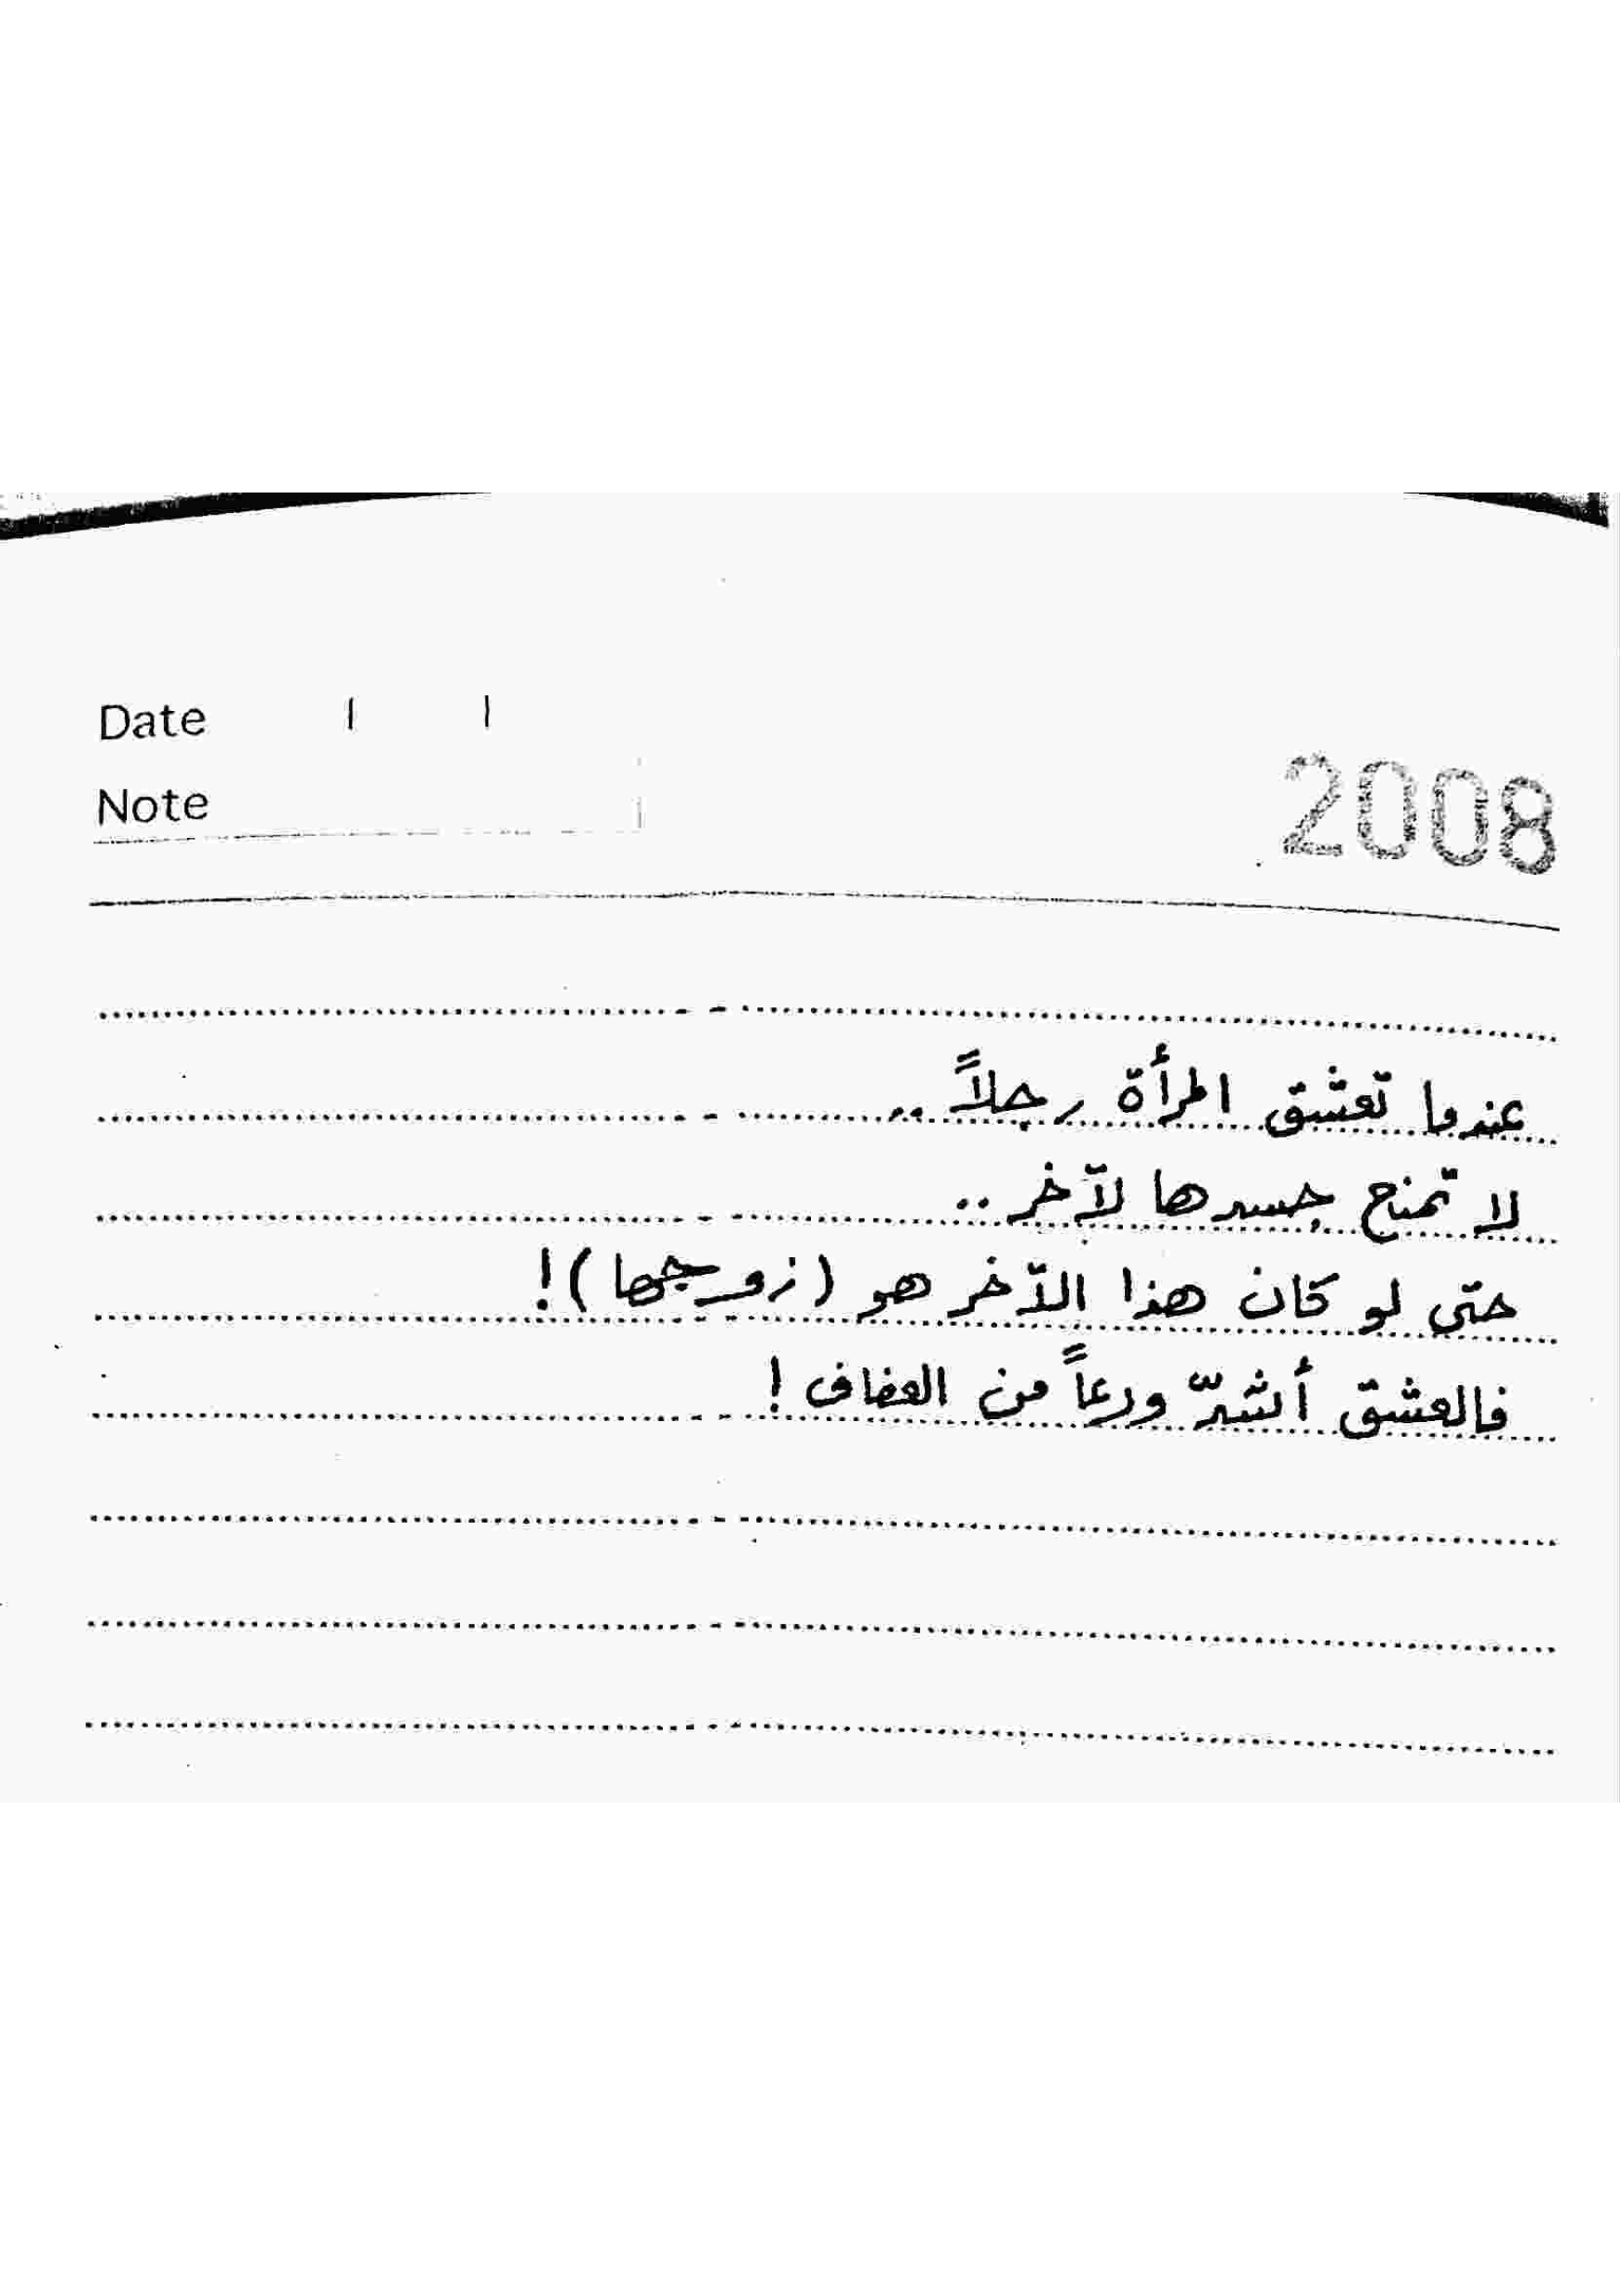 Date / /
Note
2008
عندما تعشق المرأة رجلاً ..
لا تمنح جسدها لآخر ..
حتى لو كان هذا الآخر هو (زوجها)!
فالعشق أشدّ ورعاً من العفاف!